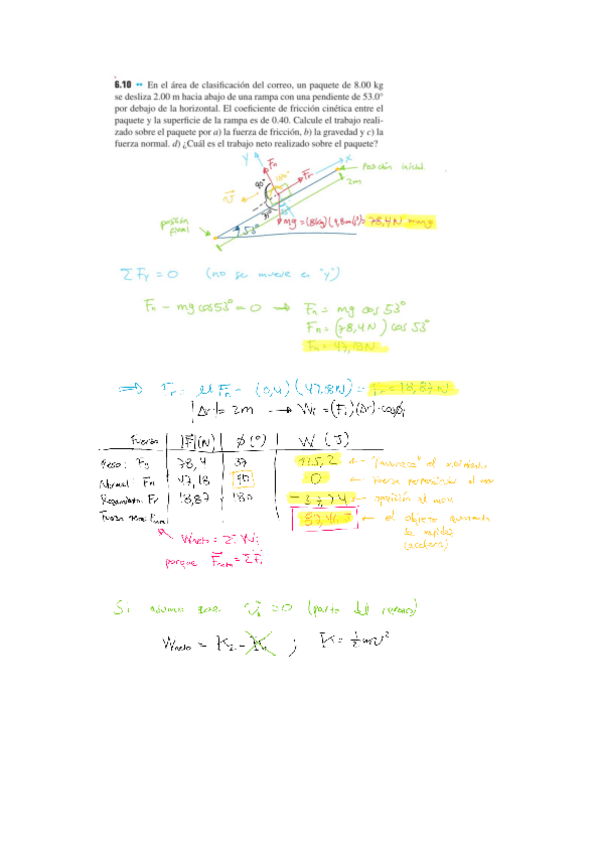 6.10 •• En el área de clasificación del correo, un paquete de 8.00 kg
se desliza 2.00 m hacia abajo de una rampa con una pendiente de 53.0°
por debajo de la horizontal. El coeficiente de fricción cinética entre el
paquete y la superficie de la rampa es de 0.40. Calcule el trabajo reali-
zado sobre el paquete por a) la fuerza de fricción, b) la gravedad y c) la
fuerza normal. d) ¿Cuál es el trabajo neto realizado sobre el paquete?
Y
Fn
Fr
X
Posición inicial
2m
90°
posición
final
53°
mg = (8kg)(9,8m/s²) = 78,4N
ΣFy = 0 (no se mueve en "y")
Fn - mg cos53° = 0 → Fn = mg cos 53°
Fn = (78,4N) cos 53°
Fn = 47,18N
⇒ Fr = μFn = (0,4)(47,18N) = Fr = 18,87N
|Δr| = 2m → Wi = (Fi)(Δr)·cosϕi
Fuerza |F|(N) ϕ(°) W (J)
Peso: Fg 78,4 37 125,2 ← "favorece" el movimiento
Normal: Fn 47,18 90 0 ← fuerza perpendicular al mov
Rozamiento: Fr 18,87 180 -37,74 ← oposición al mov
Fuerza neta 87,46 J ← el objeto aumenta
su rapidez
(acelera)
Wneto = ΣWi
porque Fneta = ΣFi
Si asumo que vi = 0 (parte del reposo)
Wneto = K2 - K1 ; K = ½mv²